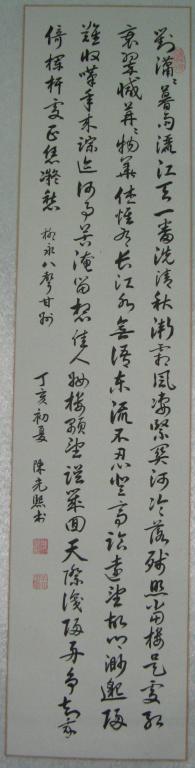 對瀟〻暮雨洒江天一番洗清秋漸霜風凄緊關河冷落殘照當樓是處紅
衰翠減苒〻物華休惟有長江水無語東流不忍登高臨遠望故鄉渺邈歸
難收嘆年来踪迹何事苦淹留想佳人妝樓顒望誤幾回天際識歸舟爭知我
倚欄杆處正恁凝愁 柳永八聲甘州 丁亥初夏 陳光熙书